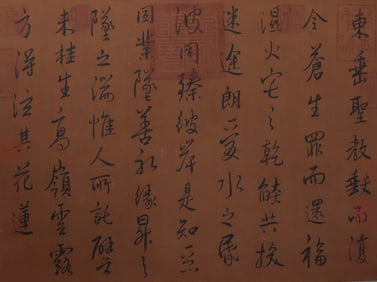 東垂聖教缺而復
全蒼生罪而還福
濕火宅之乾燄共拔
迷途朗愛水之昏
波同臻彼岸是知惡
因業墜善以緣昇々
墜之端惟人所託譬
夫桂生高嶺雲露
方得泫其花蓮